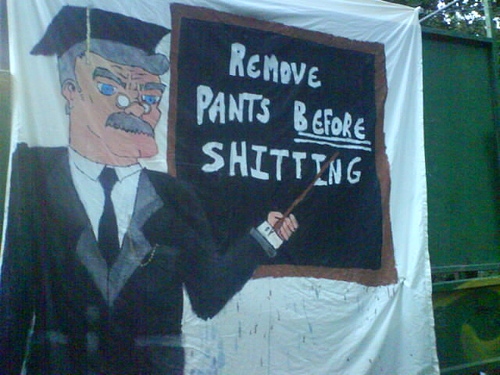 REMOVE
PANTS BEFORE
SHITTING